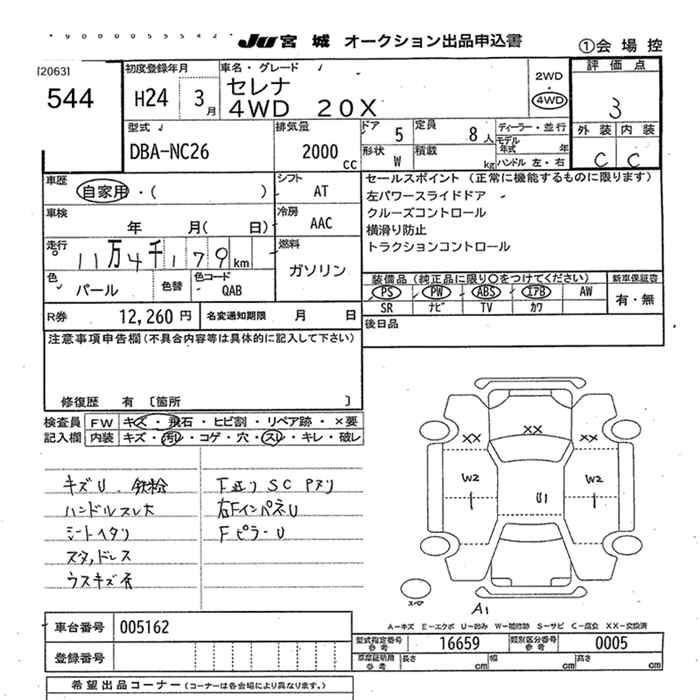 Ju 宮城 オークション出品申込書
①会場控
[2063]
544
初度登録年月
H24 3月
車名・グレード
セレナ
4WD 20X
2WD
4WD
評価点
3
外装 内装
C C
型式
DBA-NC26
排気量
2000 cc
ドア 5
定員 8人
形状 W
積載 kg
ディーラー・並行
モデル年式 年
ハンドル 左・右
車歴
自家用・( )
シフト
AT
車検
年 月( 日)
冷房
AAC
走行
11万4千179km
燃料
ガソリン
色
パール
色替
色コード
QAB
セールスポイント (正常に機能するものに限ります)
左パワースライドドア
クルーズコントロール
横滑り防止
トラクションコントロール
装備品(純正品に限り○をつけてください)
新車保証書
PS PW ABS エアB AW
SR ナビ TV カワ
有・無
R券 12,260円
名変通知期限 月 日
後日品
注意事項申告欄(不具合内容等は具体的に記入して下さい)
修復歴 有 [箇所 ]
検査員
記入欄
FW キズ・飛石・ヒビ割・リペア跡・×要
内装 キズ・汚レ・コゲ・穴・スレ・キレ・破レ
キズU 鉄粉
ハンドルスレ大
シートヘタリ
スタッドレス
ウスキズ有
F廻り SC Pヌリ
右FインパネU
FピラーU
XX
XX
XX
W2
1
U1
W2
1
スペア
A1
A−キズ E−エクボ U−凹み W−補修跡 S−サビ C−腐食 XX−交換済
車台番号 005162
登録番号
型式指定番号
参考
16659
類別区分番号
参考
0005
参考
長さ cm
幅 cm
高さ cm
希望出品コーナー(コーナーは各会場により異なります。)